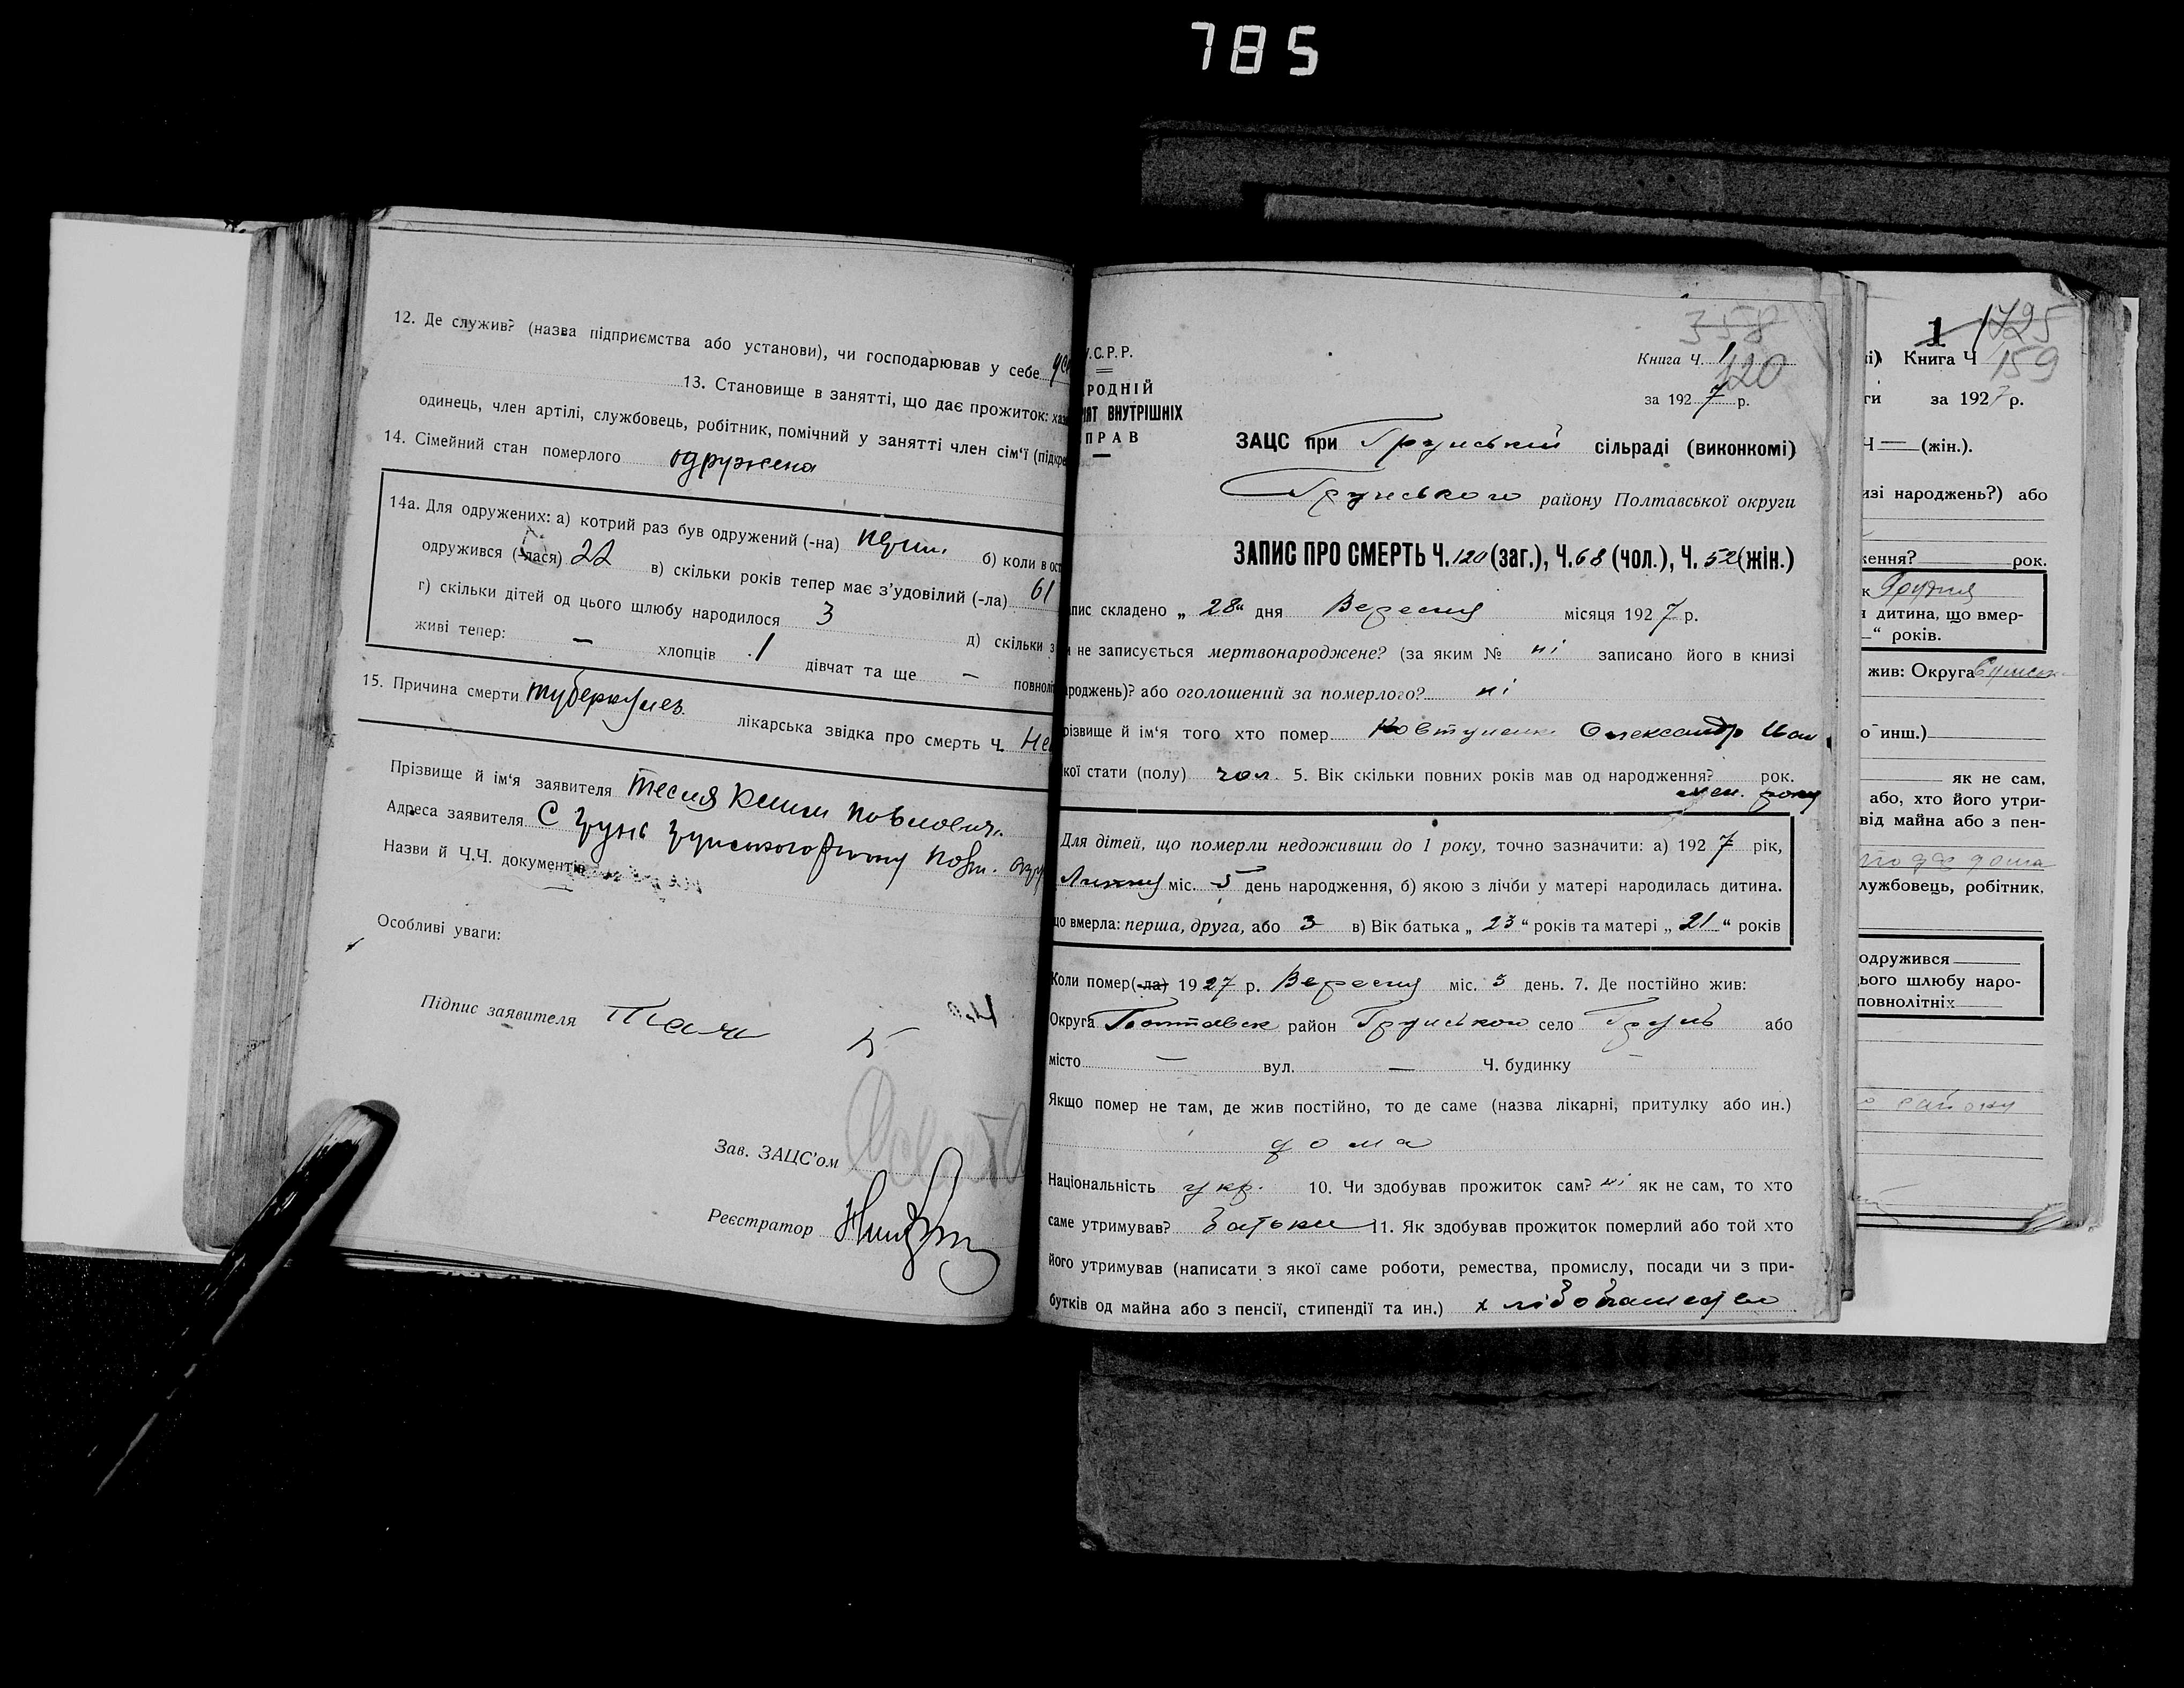 785
12. Де служив? (назва підприємства або установи), чи господарював у себе
13. Становище в занятті, що дає прожиток: хаз
одинець, член артілі, службовець, робітник, помічний у занятті член сім'ї (підкре
14. Сімейний стан померлого одружена
14а. Для одружених: а) котрий раз був одружений (-на) б) коли в ост
одружився (-лася) 22 в) скільки років тепер має з'удовілий (-ла) 61
г) скільки дітей од цього шлюбу народилося 3 д) скільки з
живі тепер: — хлопців 1 дівчат та ще — повноліт
15. Причина смерти туберкульоз лікарська звідка про смерть Ч.
Прізвище й ім'я заявителя Тесля Павлович
Адреса заявителя С Грунь Грунського району Полт. окр
Назви й Ч.Ч. документів
Особливі уваги:
Підпис заявителя
Зав. ЗАЦС'ом
Реєстратор
358
У.С.Р.Р.
Книга Ч. 1
120
РОДНІЙ
ІЯТ ВНУТРІШНІХ
ПРАВ
за 1927 р.
ЗАЦС при Грунській сільраді (виконкомі)
Грунського району Полтавської округи
ЗАПИС ПРО СМЕРТЬ Ч. 120 (заг.), Ч. 68 (чол.), Ч. 52 (жін.)
пис складено „ 28 “ дня Вересня місяця 1927 р.
и не записується мертвонароджене? (за яким № ні записано його в книзі
ароджень)? або оголошений за померлого? ні
різвище й ім'я того хто помер Ковтуненко Олександр Іван
кої стати (полу) чол. 5. Вік скільки повних років мав од народження? рок.
мен. року
Для дітей, що померли недоживши до 1 року, точно зазначити: а) 1927 рік,
Липня міс. 5 день народження, б) якою з лічби у матері народилась дитина.
що вмерла: перша, друга, або 3 в) Вік батька „ 23 “ років та матері „ 21 “ років
Коли помер(-ла) 1927 р. Вересня міс. 3 день. 7. Де постійно жив:
Округа Полтавськ район Грунською село Грунь або
місто — вул. — Ч. будинку
Якщо помер не там, де жив постійно, то де саме (назва лікарні, притулку або ин.)
дома
Національність укр. 10. Чи здобував прожиток сам? ні як не сам, то хто
саме утримував? Батьки 11. Як здобував прожиток померлий або той хто
його утримував (написати з якої саме роботи, ремества, промислу, посади чи з при-
бутків од майна або з пенсії, стипендії та ин.) хлібопашество
1 1725
і) Книга Ч 159
ги за 1927 р.
Ч — (жін.).
изі народжень?) або
ження? рок.
к Грудня
я дитина, що вмер-
“ років.
жив: Округа Сумськ
о инш.)
як не сам,
або, хто його утри-
від майна або з пен-
лужбовець, робітник,
одружився
ього шлюбу наро-
повнолітніх
району